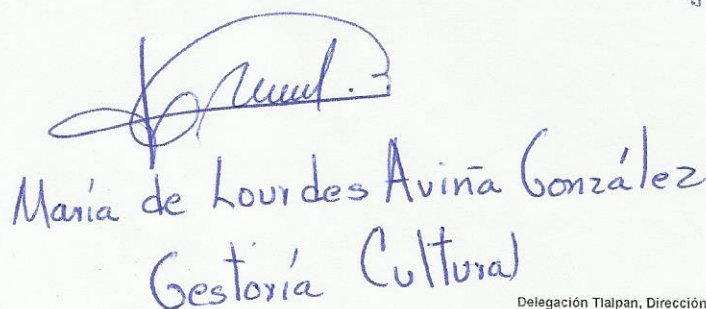 María de Lourdes Aviña González
Gestoría Cultural
Delegación Tlalpan, Dirección